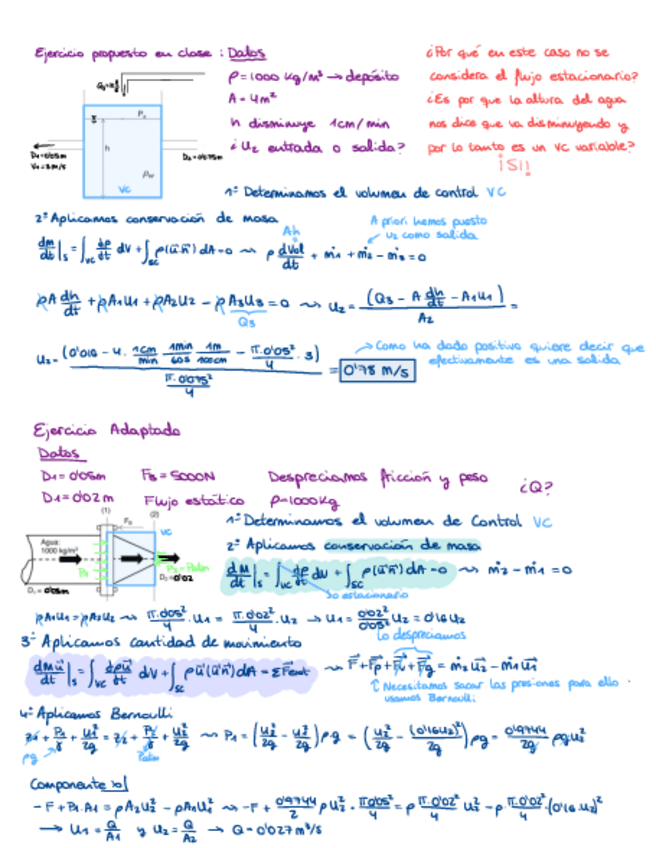 Ejercicio propuesto en clase : Datos
ρ=1000 kg/m³ → depósito
A=4m²
h disminuye 1cm/min
¿U₂ entrada o salida?
¿Por qué en este caso no se
considera el flujo estacionario?
¿Es por que la altura del agua
nos dice que va disminuyendo y
por lo tanto es un VC variable?
¡SI!!
h
VC
D₁=0'05m
V₁=3m/s
D₂=0'075m
1º Determinamos el volumen de control VC
2º Aplicamos conservación de masa
A priori hemos puesto
u₂ como salida
dm/dt|s = ∫vc dρ/dt dV + ∫sc ρ(ū·n̄) dA=0 ⇝ ρ dVol/dt + ṁ₁ + ṁ₂ - ṁ₃ = 0
Ah
ρA dh/dt + ρA₁U₁ + ρA₂U₂ - ρA₃U₃ = 0 ⇝ U₂ = (Q₃ - A dh/dt - A₁U₁) / A₂ =
Q₃
U₂ = (0'010 - 4 · 1cm/min · 1min/60s · 1m/100cm - π·0'05²/4 · 3) / (π·0'075²/4) = 0'78 m/s
→ Como ha dado positivo quiere decir que
efectivamente es una salida
Ejercicio Adaptado
Datos
D₁=0'05m F_B=5000N Despreciamos fricción y peso ¿Q?
D₁=0'02m Flujo estático ρ=1000kg
(1) (2)
VC
Agua:
1000 kg/m³
D₁=0'05m
P₂=Patm
D₂=0'02
1º Determinamos el volumen de Control VC
2º Aplicamos conservación de masa
dM/dt|s = ∫vc dρ/dt dV + ∫sc ρ(ū·n̄) dA=0 ⇝ ṁ₂ - ṁ₁ = 0
estacionario
ρA₁U₁ = ρA₂U₂ ⇝ π·0'05²/4 · U₁ = π·0'02²/4 · U₂ → U₁ = 0'02²/0'05² U₂ = 0'16U₂
Lo despreciamos
3º Aplicamos cantidad de movimiento
dMū/dt|s = ∫vc dρū/dt dV + ∫sc ρū(ū·n̄) dA = ΣF̄ext ⇝ F̄+F̄p+F̄v+F̄g = ṁ₂ū₂ - ṁ₁ū₁
↑ Necesitamos sacar las presiones para ello
usamos Bernoulli
4º Aplicamos Bernoulli
z₁ + P₁/γ + U₁²/2g = z₂ + P₂/γ + U₂²/2g ⇝ P₁ = (U₂²/2g - U₁²/2g) ρg = (U₂²/2g - (0'16U₂)²/2g) ρg = 0'9744/2g ρgU₂²
ρg Patm
Componente x
-F + P₁·A₁ = ρA₂U₂² - ρA₁U₁² ⇝ -F + 0'9744/2 ρU₂² · π·0'05²/4 = ρ π·0'02²/4 U₂² - ρ · π·0'02²/4 · (0'16·U₂)²
→ U₁ = Q/A₁ y U₂ = Q/A₂ → Q=0'027m³/s